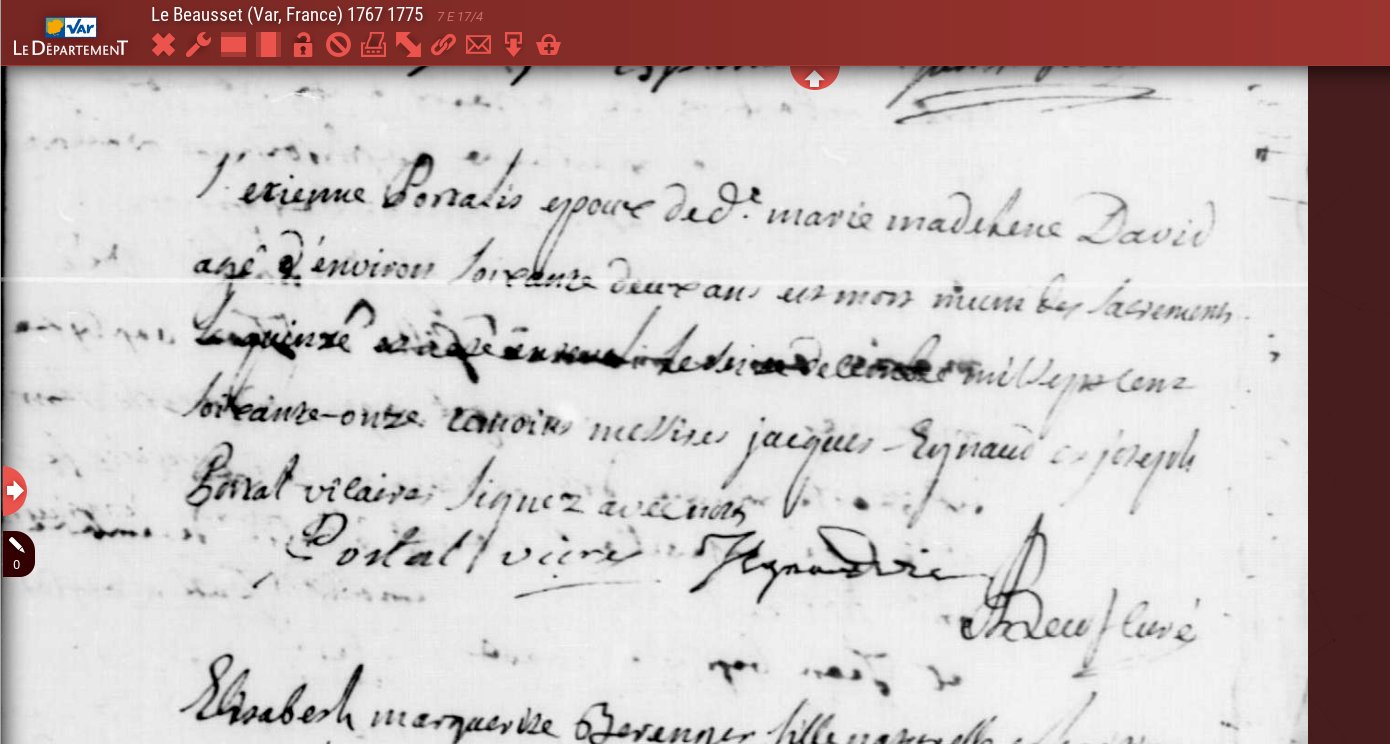 Le Beausset (Var, France) 1767 1775 7 E 17/4
VAR
LE DÉPARTEMENT
S.r etienne Portalis epoux de d.e marie madelene David
agé d'environ soixante deux ans est mort muni des sacremens
le quinze mil sept cent
soixante-onze. temoins messires jacques Eynaud et joseph
Portal vicaires signez avec nous
Portal vicre
curé
0
Elisabeth marguerite Berenger fille naturelle